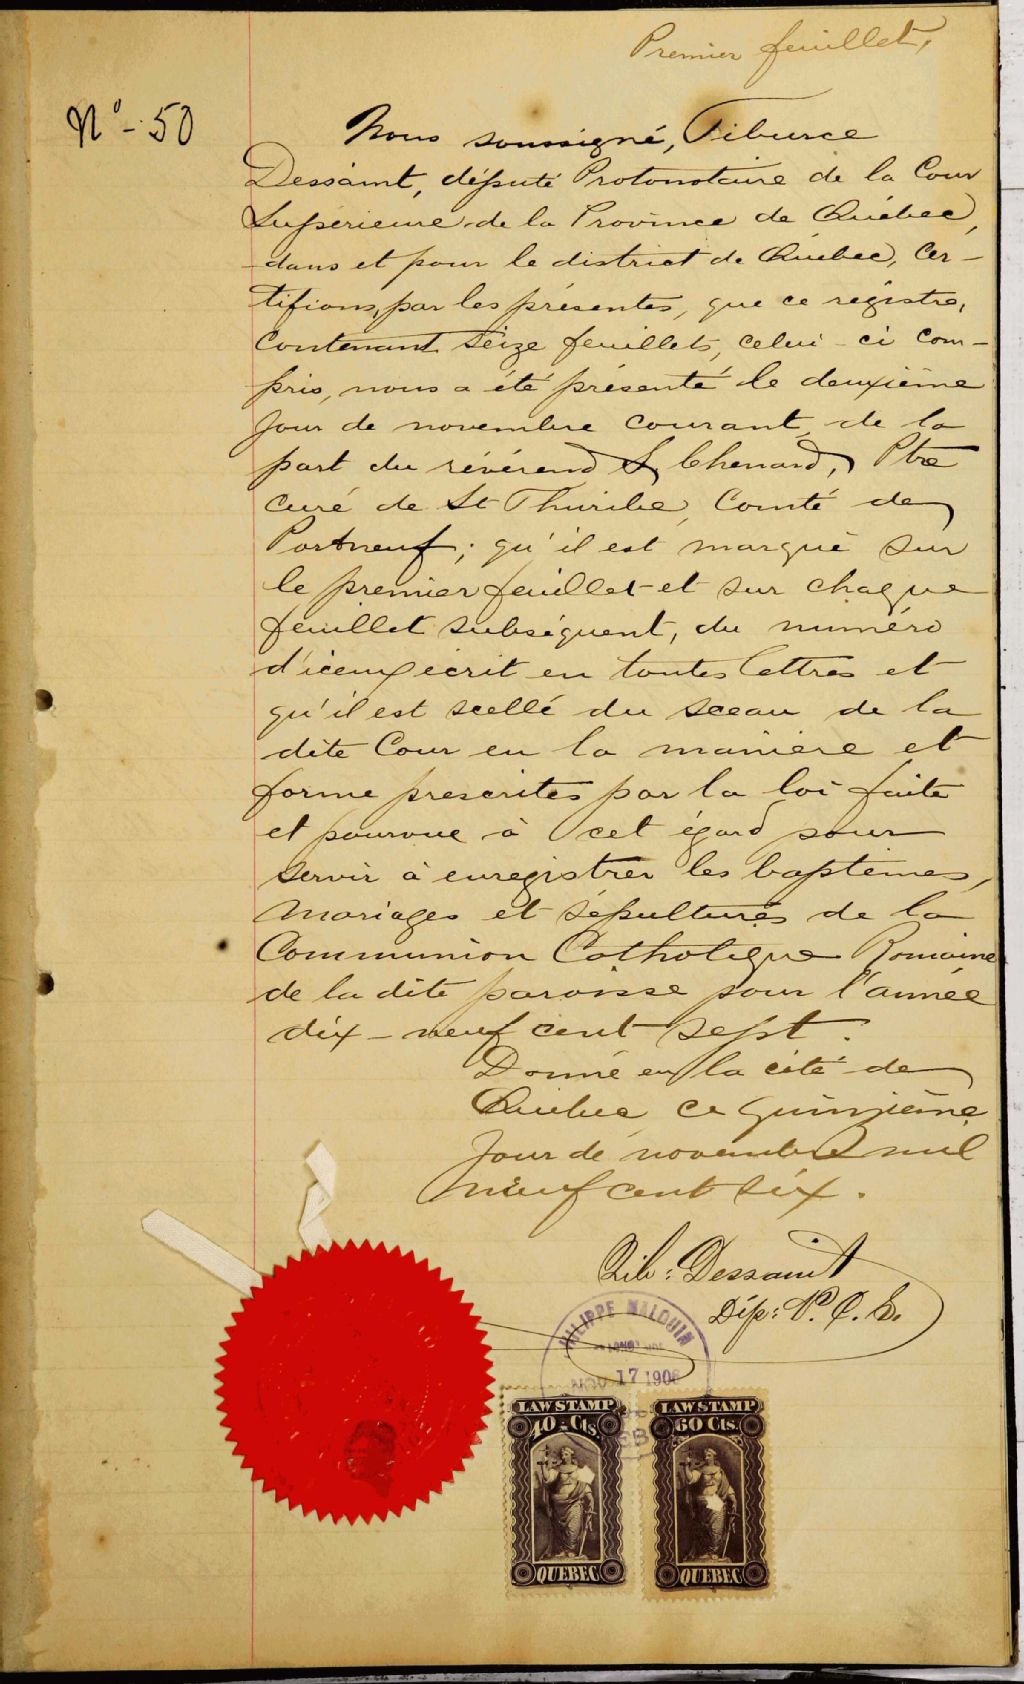 Premier feuillet.
No - 50
Nous soussigné, Tiburce
Dessaint, député Protonotaire de la Cour
Supérieure de la Province de Québec,
dans et pour le district de Québec, cer-
tifions, par les présentes, que ce régistre,
contenant seize feuillets, celui-ci com-
pris, nous a été présenté le deuxième
jour de novembre courant, de la
part du révérend S Chenard, Ptre
curé de St Thuribe, Comté de
Portneuf; qu'il est marqué sur
le premier feuillet et sur chaque
feuillet subséquent, du numéro
d'iceux écrit en toutes lettres et
qu'il est scellé du sceau de la
dite Cour en la manière et
forme prescrites par la loi faite
et pourvue à cet égard pour
servir à enregistrer les baptêmes,
mariages et sépultures de la
Communion Catholique Romaine
de la dite paroisse pour l'année
dix-neuf cent sept.
Donné en la cité de
Québec, ce quinzième
jour de novembre mil
neuf cent six.
Tib: Dessaint
Dép: P. C. S.
PHILIPPE MALOUIN
NOV 17 1906
LAW STAMP LAW STAMP
40 Cts. 60 Cts.
QUEBEC QUEBEC